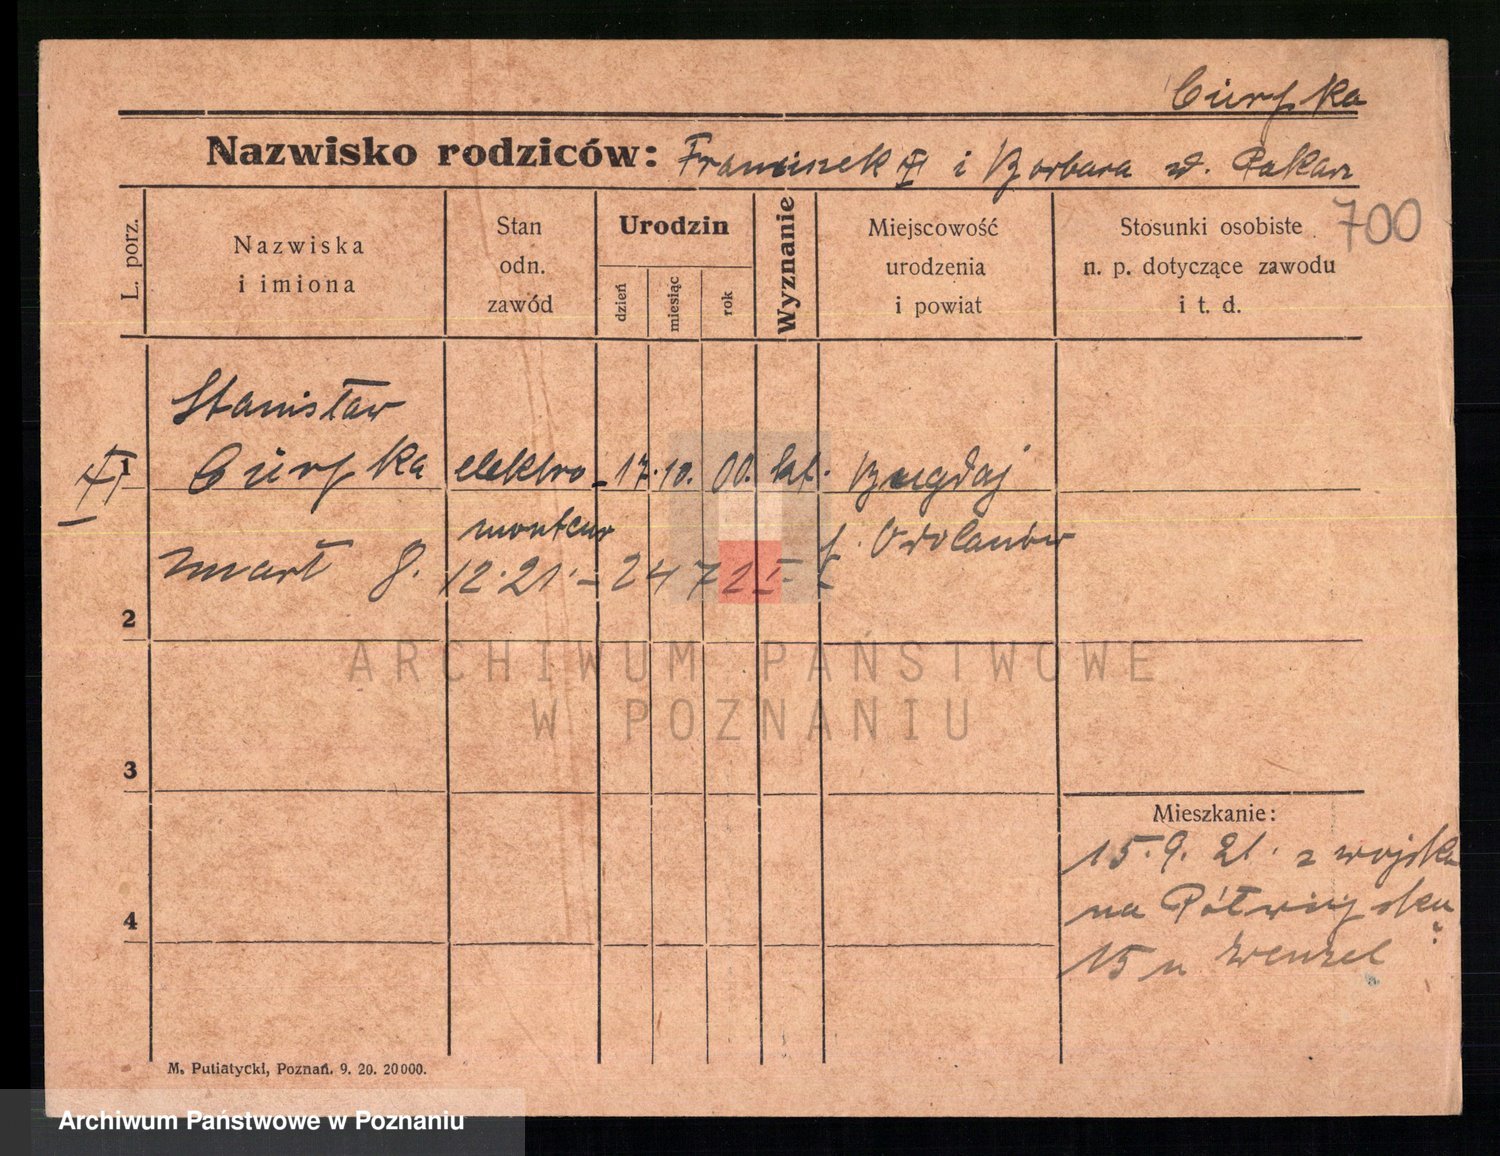 Cierpka
Nazwisko rodziców: Franciszek i Barbara zd.
700
L. porz.
Nazwiska
i imiona
Stan
odn.
zawód
Urodzin
dzień
miesiąc
rok
Wyznanie
Miejscowość
urodzenia
i powiat
Stosunki osobiste
n. p. dotyczące zawodu
i t. d.
Stanisław
1 Cierpka elektro- 17. 10. 00. kat. Bugdaj
monteur p. Odolanów
zmarł 8. 12. 21. - 2472
2
3
Mieszkanie:
15. 9. 21. z wojska
na Półwiejską
4
15 u Wenzel
M. Putiatycki, Poznań. 9. 20. 20000.
ARCHIWUM PAŃSTWOWE
W POZNANIU
Archiwum Państwowe w Poznaniu